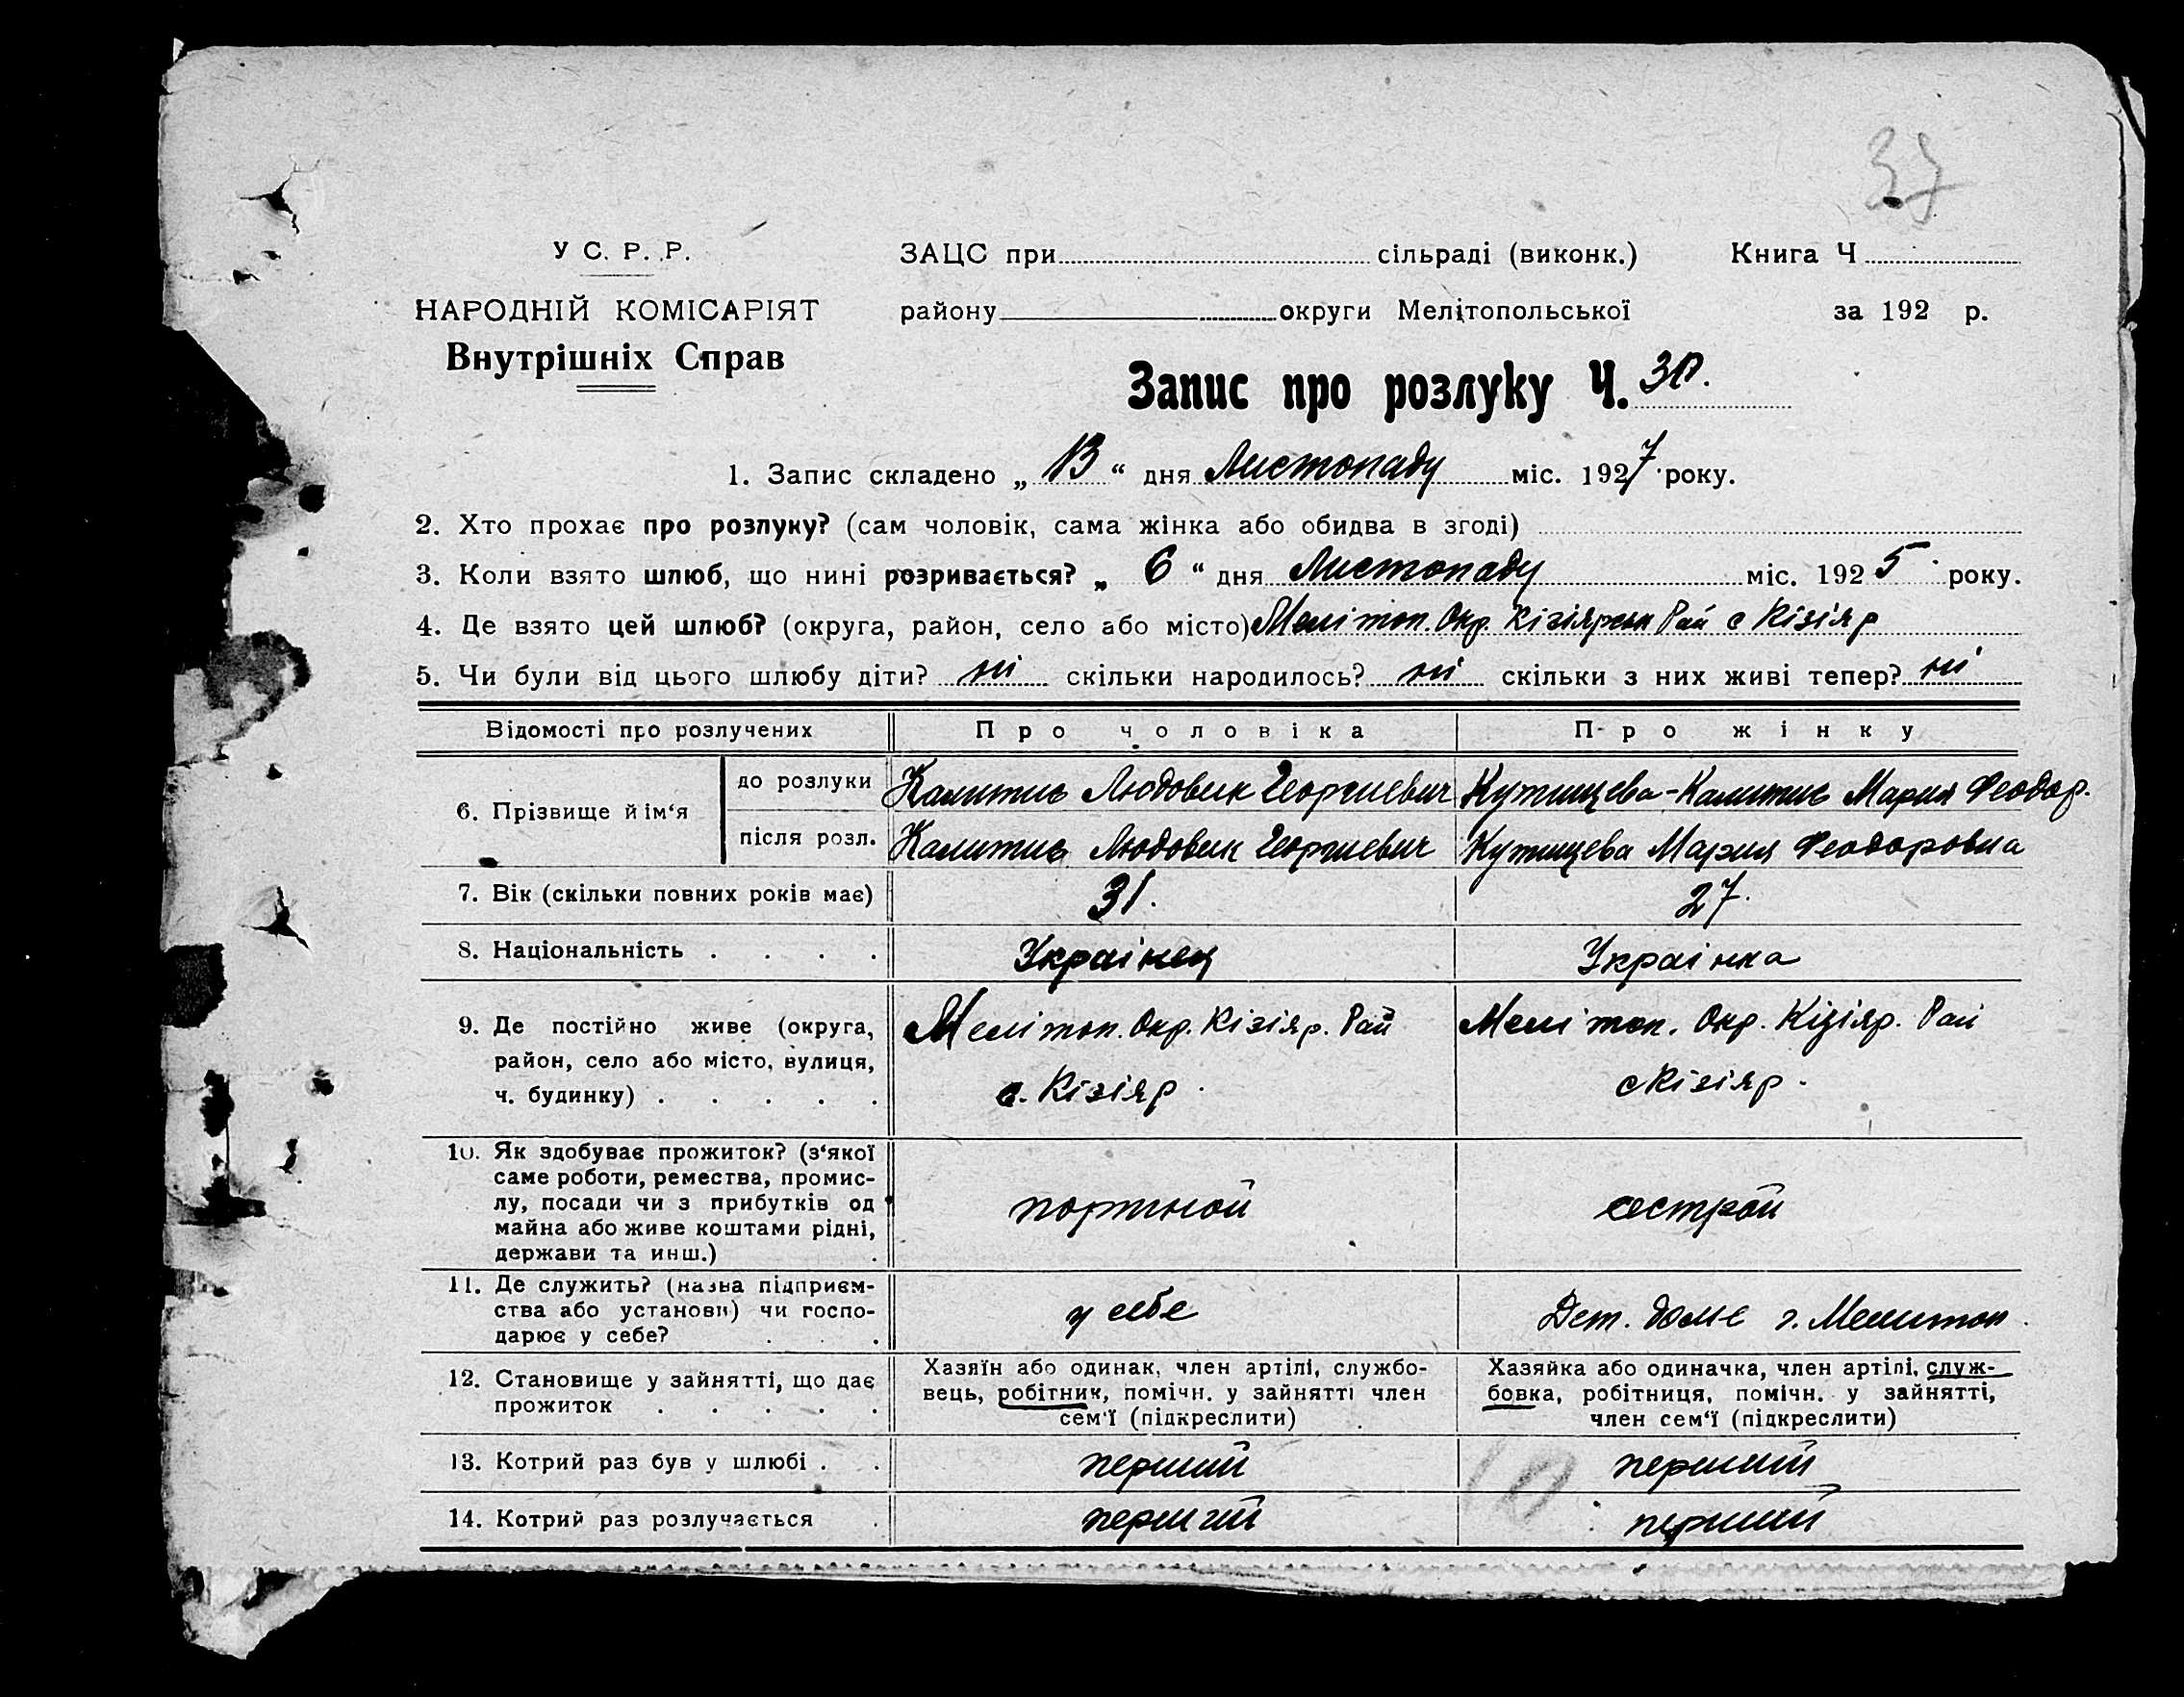 37
У С. Р. Р.
НАРОДНІЙ КОМІСАРІЯТ
Внутрішніх Справ
ЗАЦС при сільраді (виконк.) Книга Ч
району округи Мелітопольської за 192 р.
Запис про розлуку Ч. 30.
1. Запис складено „ 13 “ дня Листопаду міс. 1927 року.
2. Хто прохає про розлуку? (сам чоловік, сама жінка або обидва в згоді)
3. Коли взято шлюб, що нині розривається? „ 6 “ дня Листопаду міс. 1925 року.
4. Де взято цей шлюб? (округа, район, село або місто) Мелітоп. Окр. Кізіярськ Рай с Кізіяр
5. Чи були від цього шлюбу діти? ні скільки народилось? ні скільки з них живі тепер? ні
Відомості про розлучених Про чоловіка Про жінку
6. Прізвище й ім‘я
до розлуки Калитис Людовик Георгиевич Кутищева-Калитис Мария Феодор.
після розл. Калитис Людовик Георгиевич Кутищева Мария Феодоровна
7. Вік (скільки повних років має) 31. 27.
8. Національність . . . . Українец Українка
9. Де постійно живе (округа, Меліточ. Окр. Кізіяр. Рай Меліточ. Окр. Кізіяр. Рай
район, село або місто, вулиця,
ч. будинку) . . . . . с. Кізіяр. с Кізіяр.
10. Як здобуває прожиток? (з‘якої
саме роботи, ремества, промис-
лу, посади чи з прибутків од портной сестрой
майна або живе коштами рідні,
держави та инш.) .
11. Де служить? (назва підприєм-
ства або установи) чи госпо- у себе Дет. доме г. Мелитоп.
дарює у себе? . . .
12. Становище у зайнятті, що дає
прожиток . . . . .
Хазяїн або одинак, член артілі, службо-
вець, робітник, помічн. у зайнятті член
сем‘ї (підкреслити)
Хазяйка або одиначка, член артілі, служ-
бовка, робітниця, помічн. у зайнятті,
член сем‘ї (підкреслити)
13. Котрий раз був у шлюбі . . перший перший
14. Котрий раз розлучається . перший перший